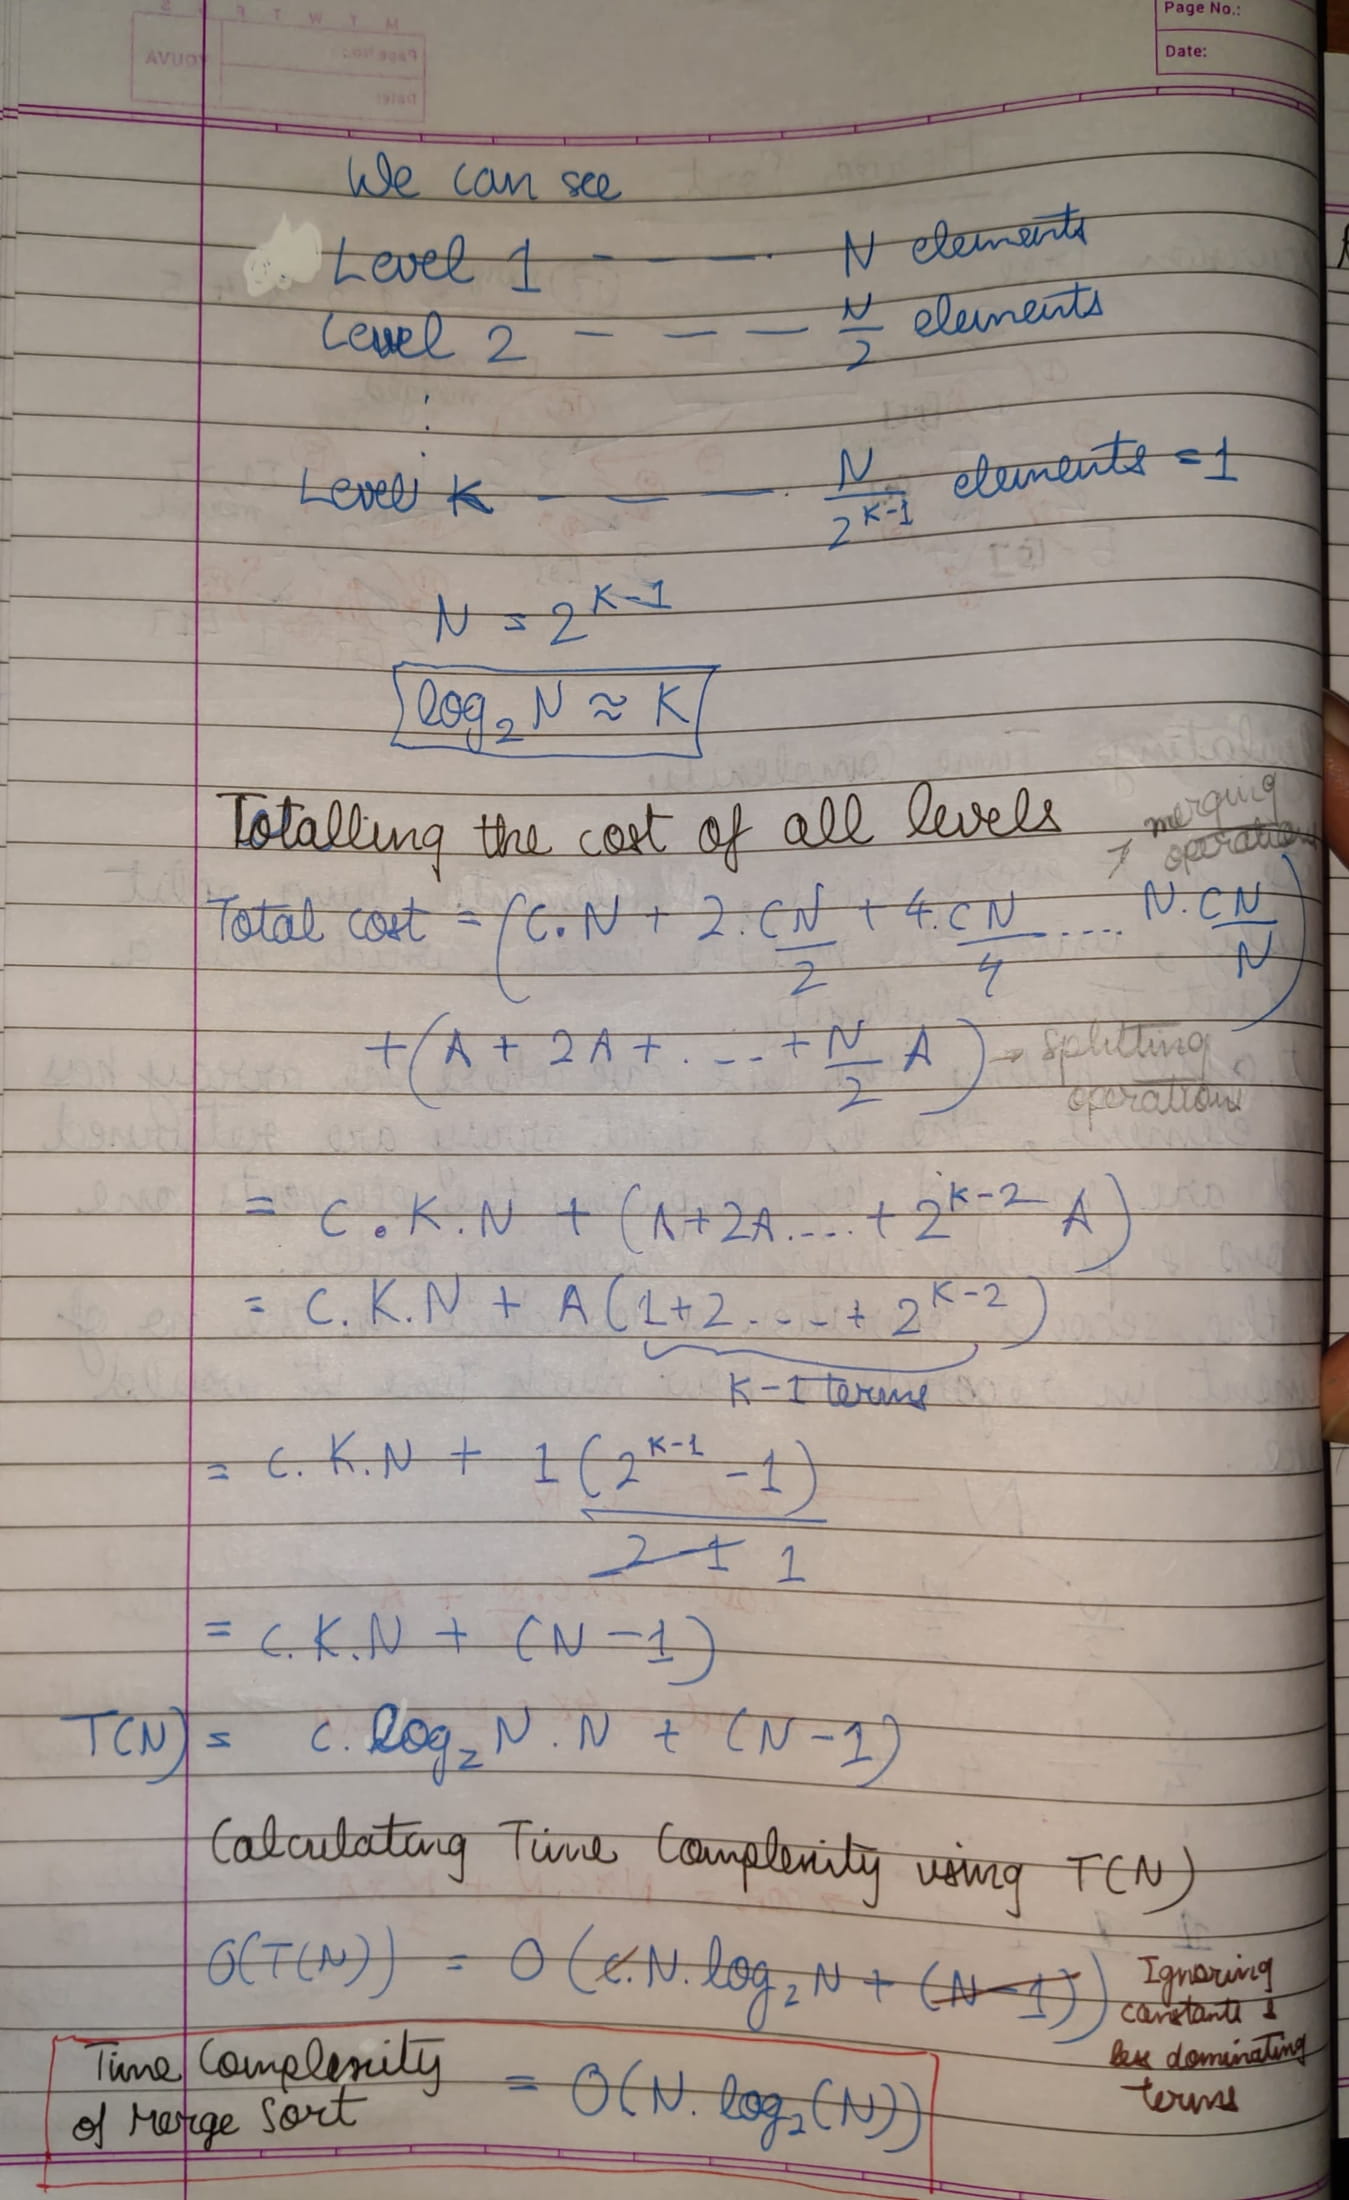 Page No.:
Date:
We can see
Level 1 - - - - N elements
Level 2 - - - - N/2 elements
⋮
Level K - - - - N/2^(K-1) elements = 1
N = 2^(K-1)
log₂ N ≈ K
Totalling the cost of all levels
merging operations
Total cost = (C.N + 2.CN/2 + 4.CN/4 ..... N.CN/N)
+ (A + 2A + .... + N/2 A) → splitting operations
= C.K.N + (A+2A....+ 2^(K-2) A)
= C.K.N + A(1+2....+ 2^(K-2))
K-1 terms
= C.K.N + 1(2^(K-1) -1)/2-1 1
= C.K.N + (N-1)
T(N) = C.log₂N.N + (N-1)
Calculating Time Complexity using T(N)
O(T(N)) = O(C.N.log₂N + (N-1)) Ignoring constants & less dominating terms
Time Complexity of Merge Sort = O(N.log₂(N))